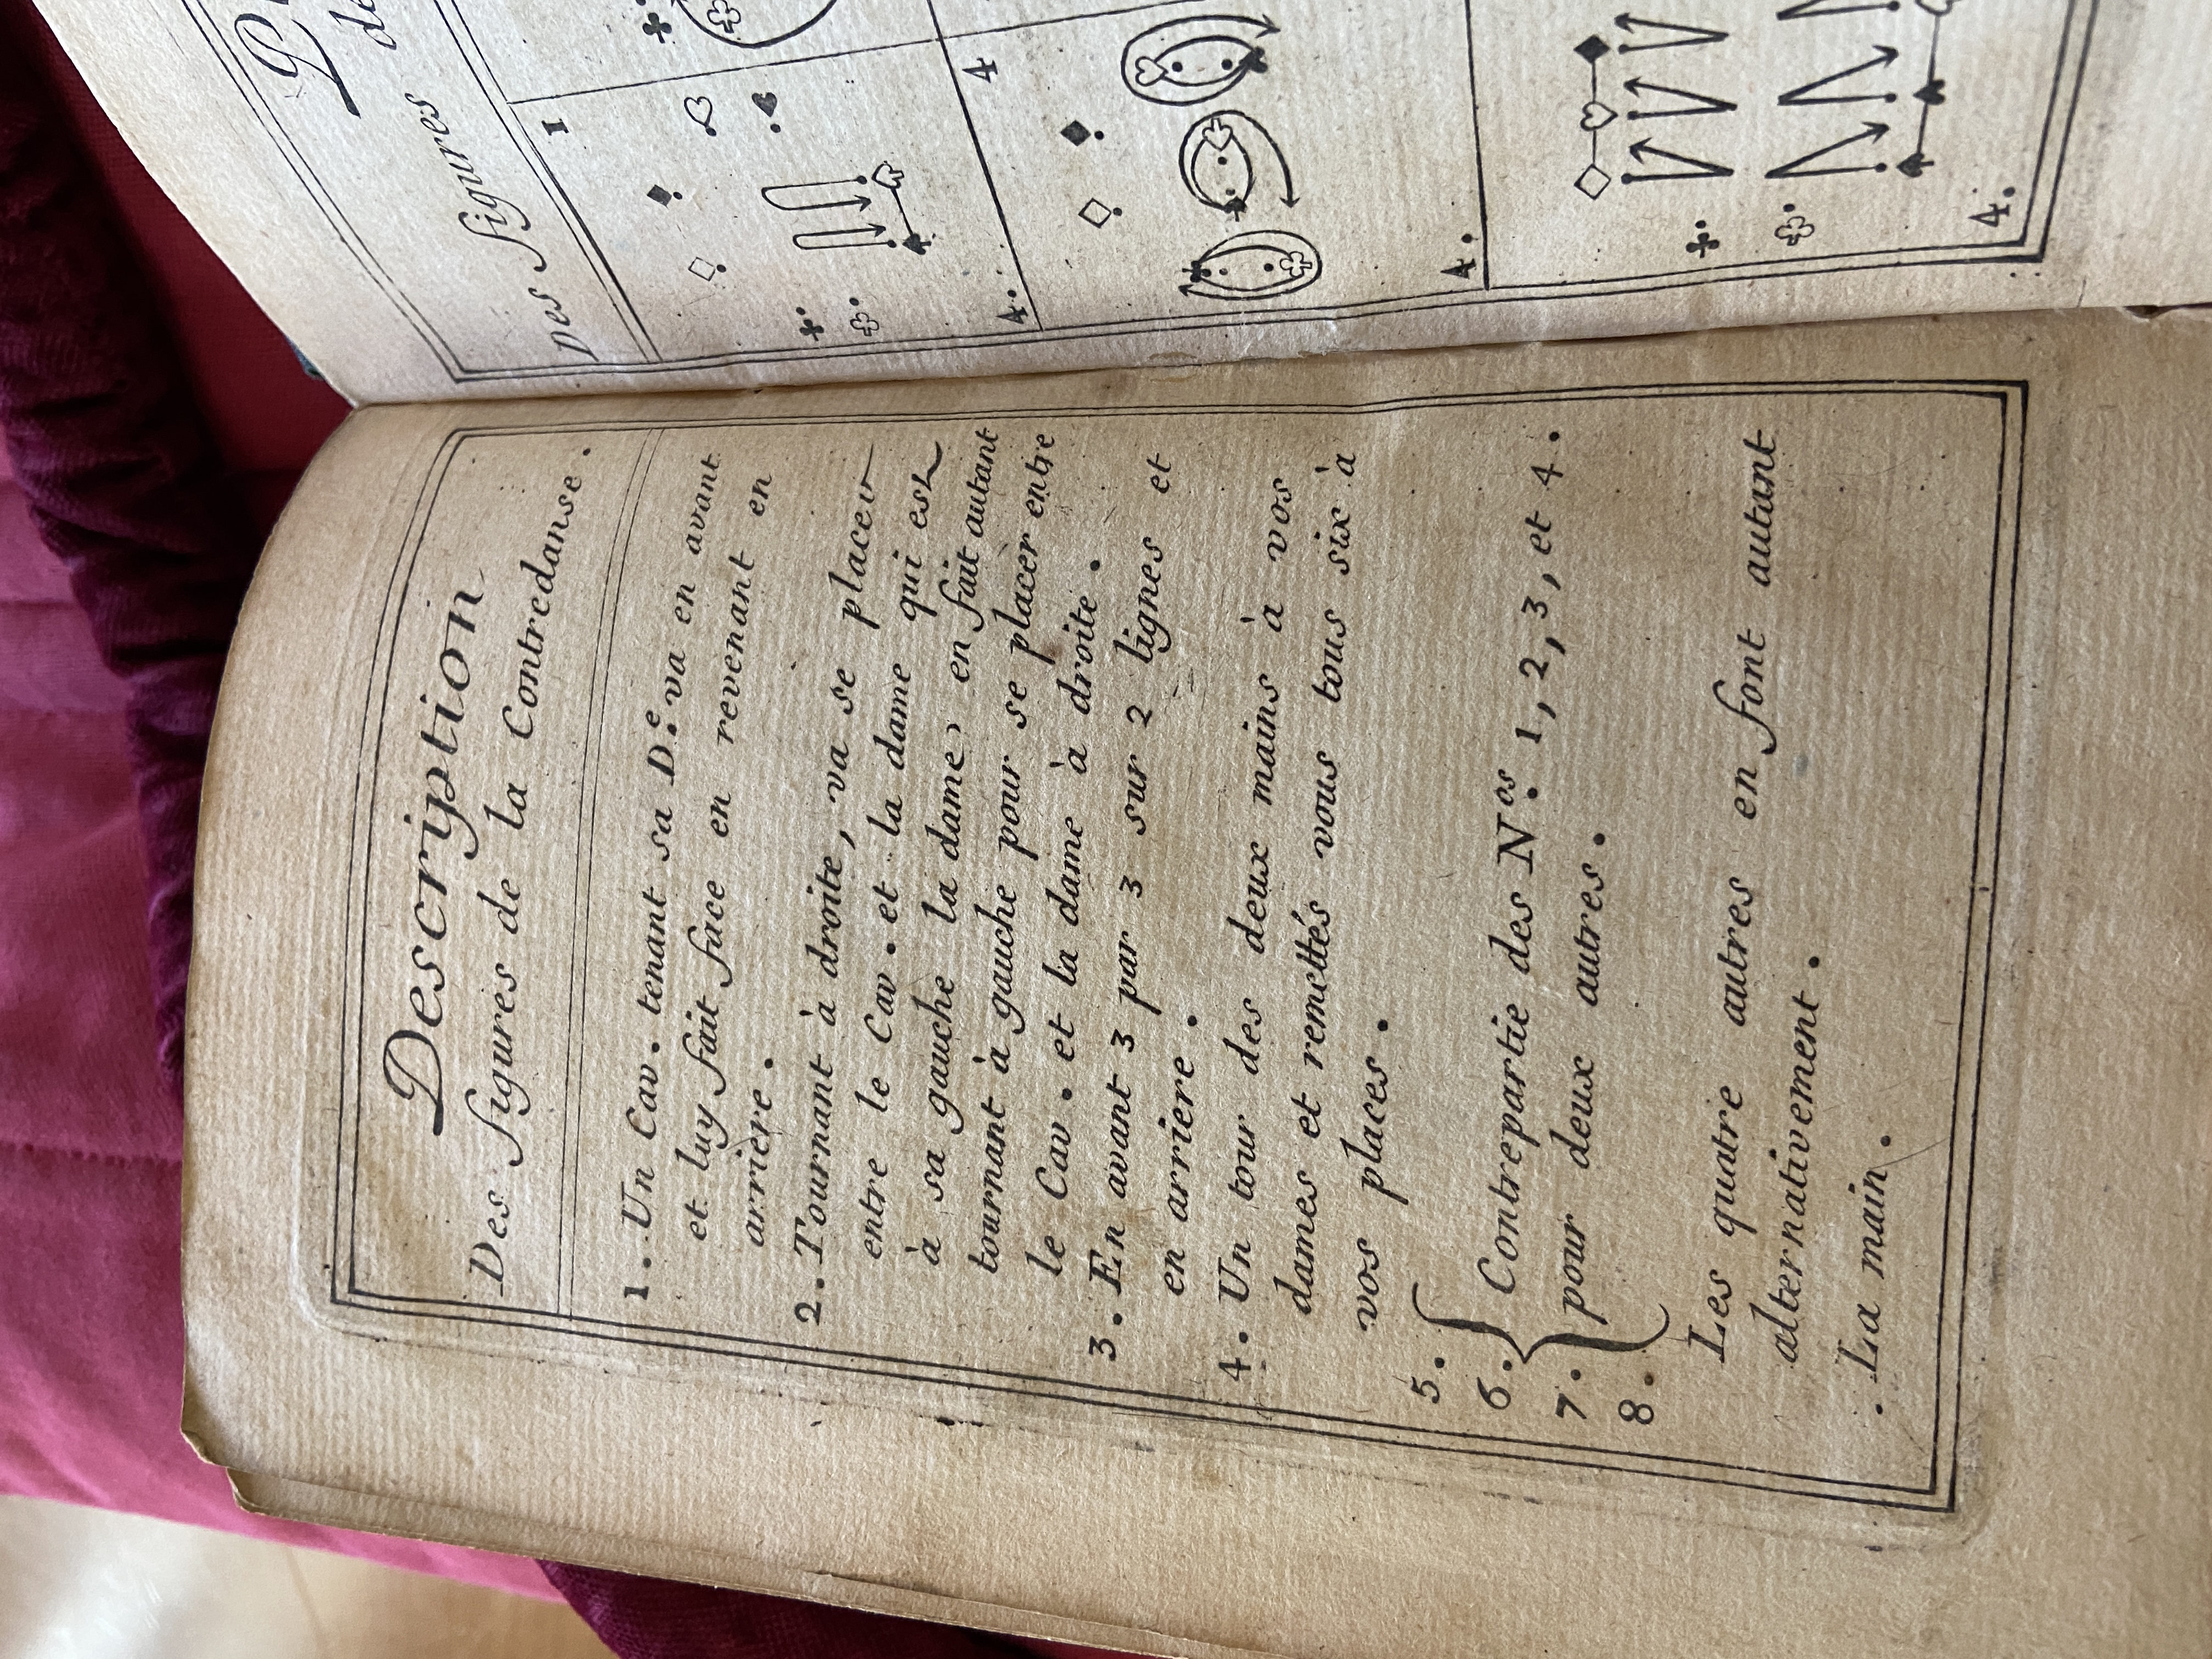 Description
Des figures de la Contredanse.
1. Un Cav. tenant sa D.e va en avant
et luy fait face en revenant en
arriere.
2. Tournant à droite, va se placer
entre le Cav. et la dame qui est
à sa gauche la dame, en fait autant
tournant à gauche pour se placer entre
le Cav. et la dame à droite.
3. En avant 3 par 3 sur 2 lignes et
en arriere.
4. Un tour des deux mains à vos
dames et remettés vous tous six à
vos places.
5.
6. Contrepartie des N.os 1, 2, 3, et 4.
7. pour deux autres.
8.
Les quatre autres en font autant
alternativement.
. La main.
des figures
1
4.
4
4.
4.